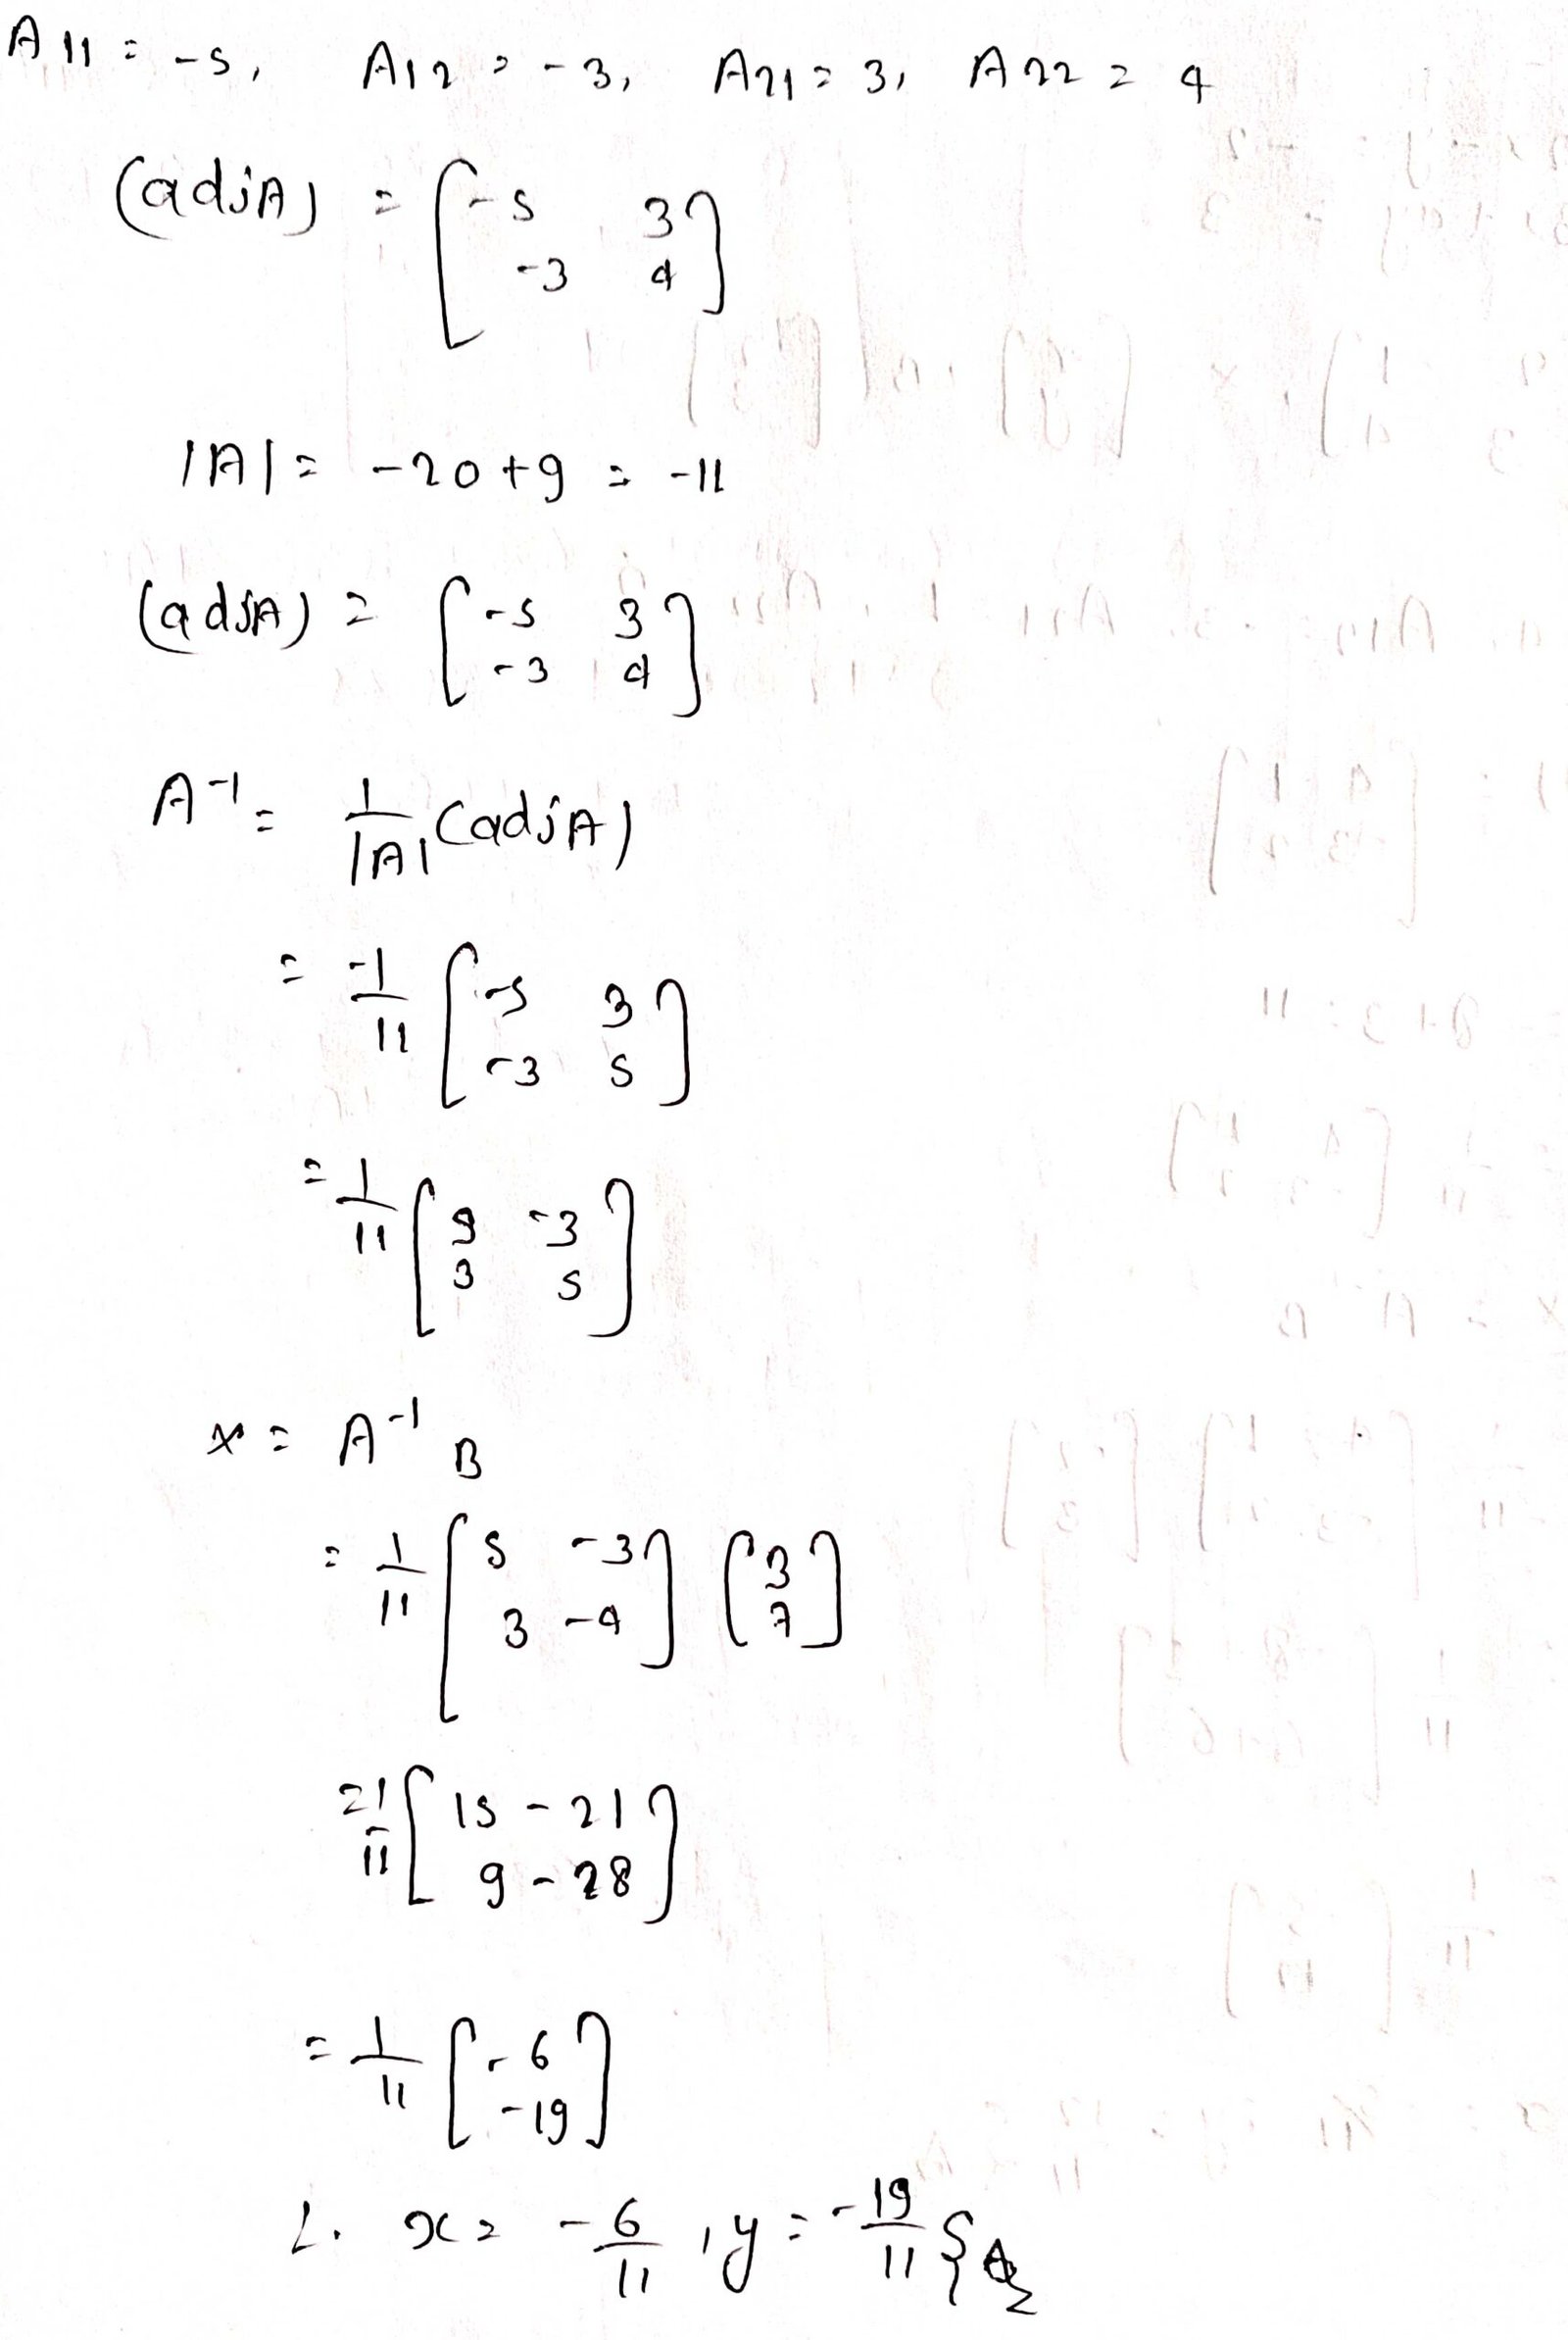 A11 = -5, A12 = -3, A21 = 3, A22 = 4
(adjA) = [-5 3
-3 4]
|A| = -20+9 = -11
(adjA) = [-5 3
-3 4]
A⁻¹ = 1/|A| (adjA)
= -1/11 [-5 3
-3 5]
= 1/11 [5 -3
3 5]
x = A⁻¹ B
= 1/11 [5 -3
3 -4] [3
7]
= 1/11 [15 - 21
9 - 28]
= 1/11 [-6
-19]
∴ x = -6/11, y = -19/11 }